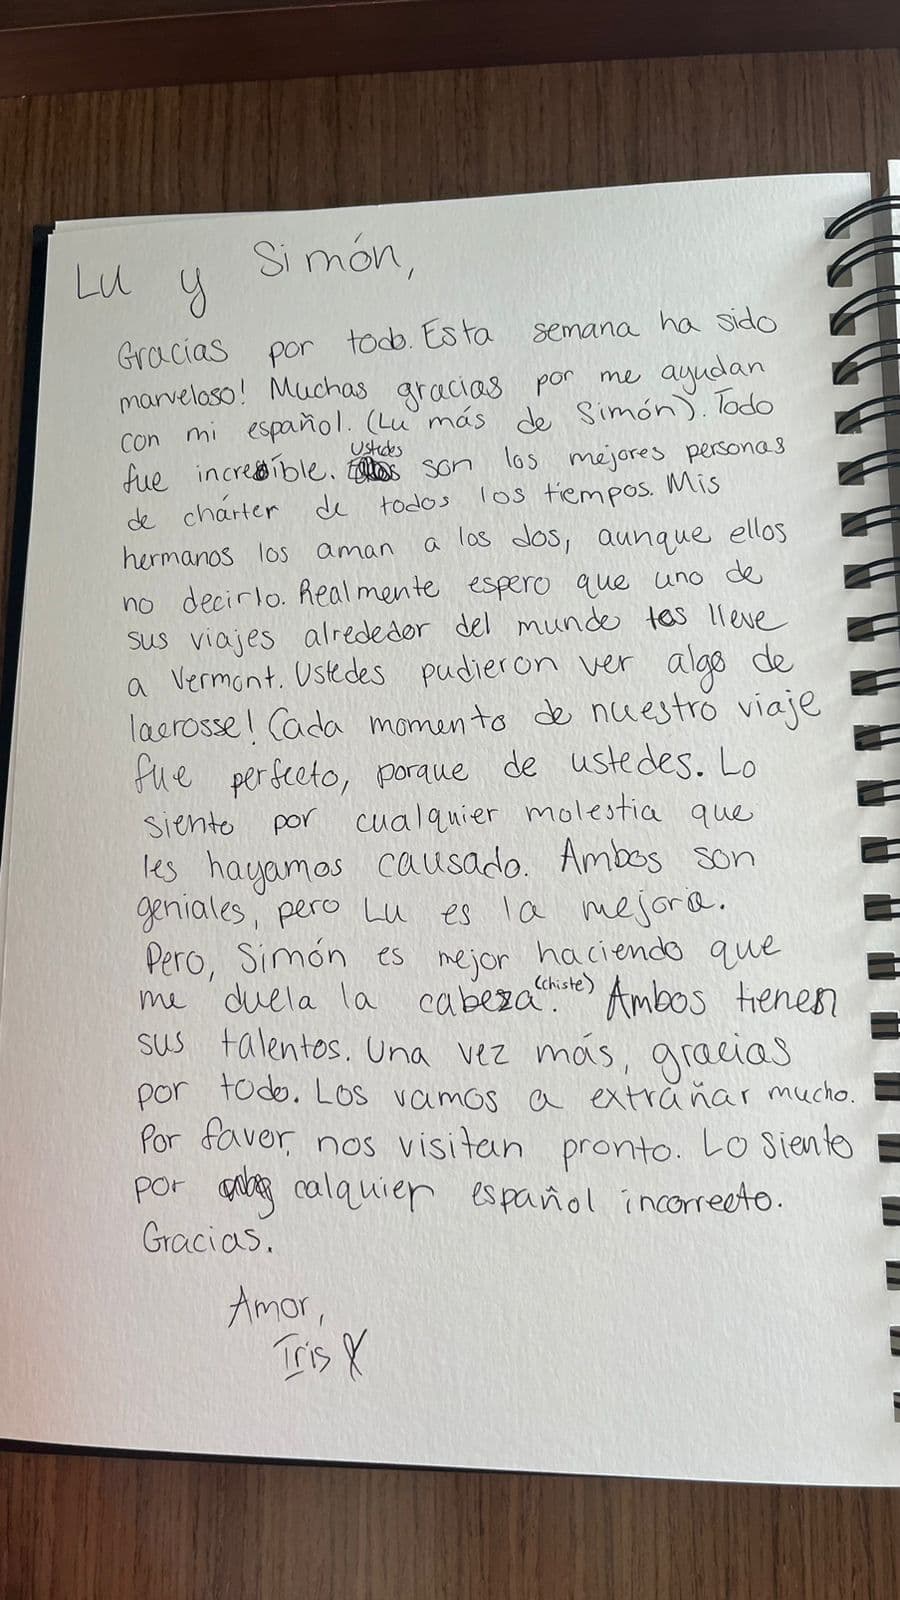 Lu y Simón,
Gracias por todo. Esta semana ha sido
marveloso! Muchas gracias por me ayudan
con mi español. (Lu más de Simón). Todo
fue increíble. Ustedes son las mejores personas
de chárter de todos los tiempos. Mis
hermanos los aman a los dos, aunque ellos
no decirlo. Realmente espero que uno de
sus viajes alrededor del mundo los lleve
a Vermont. Ustedes pudieron ver algo de
lacrosse! Cada momento de nuestro viaje
fue perfecto, porque de ustedes. Lo
siento por cualquier molestia que
les hayamos causado. Ambos son
geniales, pero Lu es la mejora.
Pero, Simón es mejor haciendo que
me duela la cabeza. (chiste) Ambos tienen
sus talentos. Una vez más, gracias
por todo. Los vamos a extrañar mucho.
Por favor, nos visitan pronto. Lo siento
por calquier español incorrecto.
Gracias.
Amor,
Iris